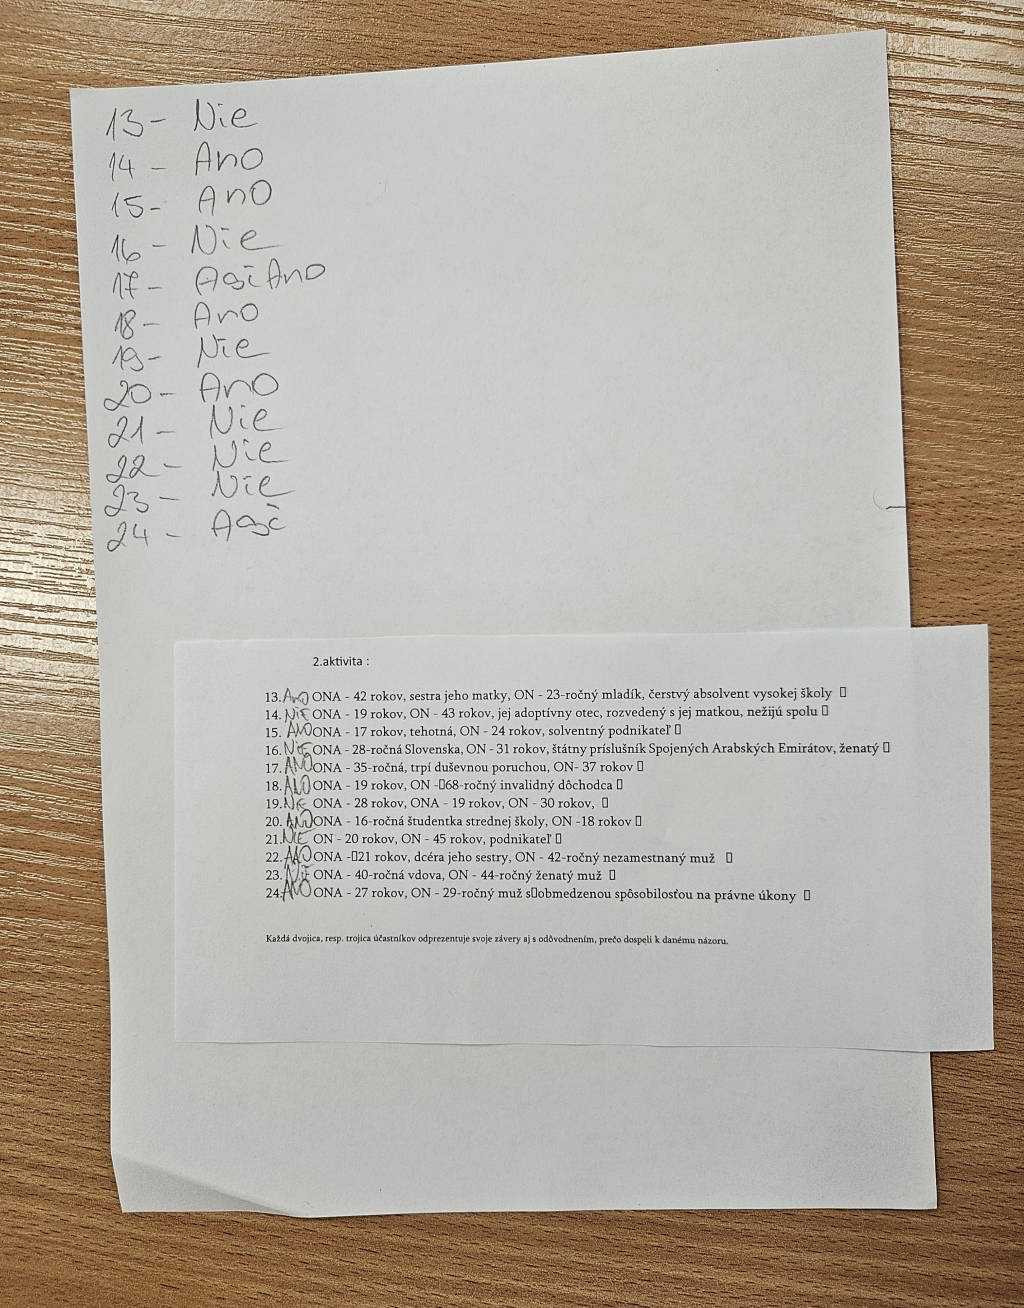 13- Nie
14- Ano
15- Ano
16- Nie
17- Asi Ano
18- Ano
19- Nie
20- Ano
21- Nie
22- Nie
23- Nie
24- Asi
2.aktivita :
13. Ano ONA - 42 rokov, sestra jeho matky, ON - 23-ročný mladík, čerstvý absolvent vysokej školy
14. NIE ONA - 19 rokov, ON - 43 rokov, jej adoptívny otec, rozvedený s jej matkou, nežijú spolu
15. ANO ONA - 17 rokov, tehotná, ON - 24 rokov, solventný podnikateľ
16. NIE ONA - 28-ročná Slovenska, ON - 31 rokov, štátny príslušník Spojených Arabských Emirátov, ženatý
17. ANO ONA - 35-ročná, trpí duševnou poruchou, ON- 37 rokov
18. ANO ONA - 19 rokov, ON - 68-ročný invalidný dôchodca
19. NIE ONA - 28 rokov, ONA - 19 rokov, ON - 30 rokov,
20. ANO ONA - 16-ročná študentka strednej školy, ON -18 rokov
21. NIE ON - 20 rokov, ON - 45 rokov, podnikateľ
22. ANO ONA - 21 rokov, dcéra jeho sestry, ON - 42-ročný nezamestnaný muž
23. NIE ONA - 40-ročná vdova, ON - 44-ročný ženatý muž
24. ANO ONA - 27 rokov, ON - 29-ročný muž s obmedzenou spôsobilosťou na právne úkony
Každá dvojica, resp. trojica účastníkov odprezentuje svoje závery aj s odôvodnením, prečo dospeli k danému názoru.